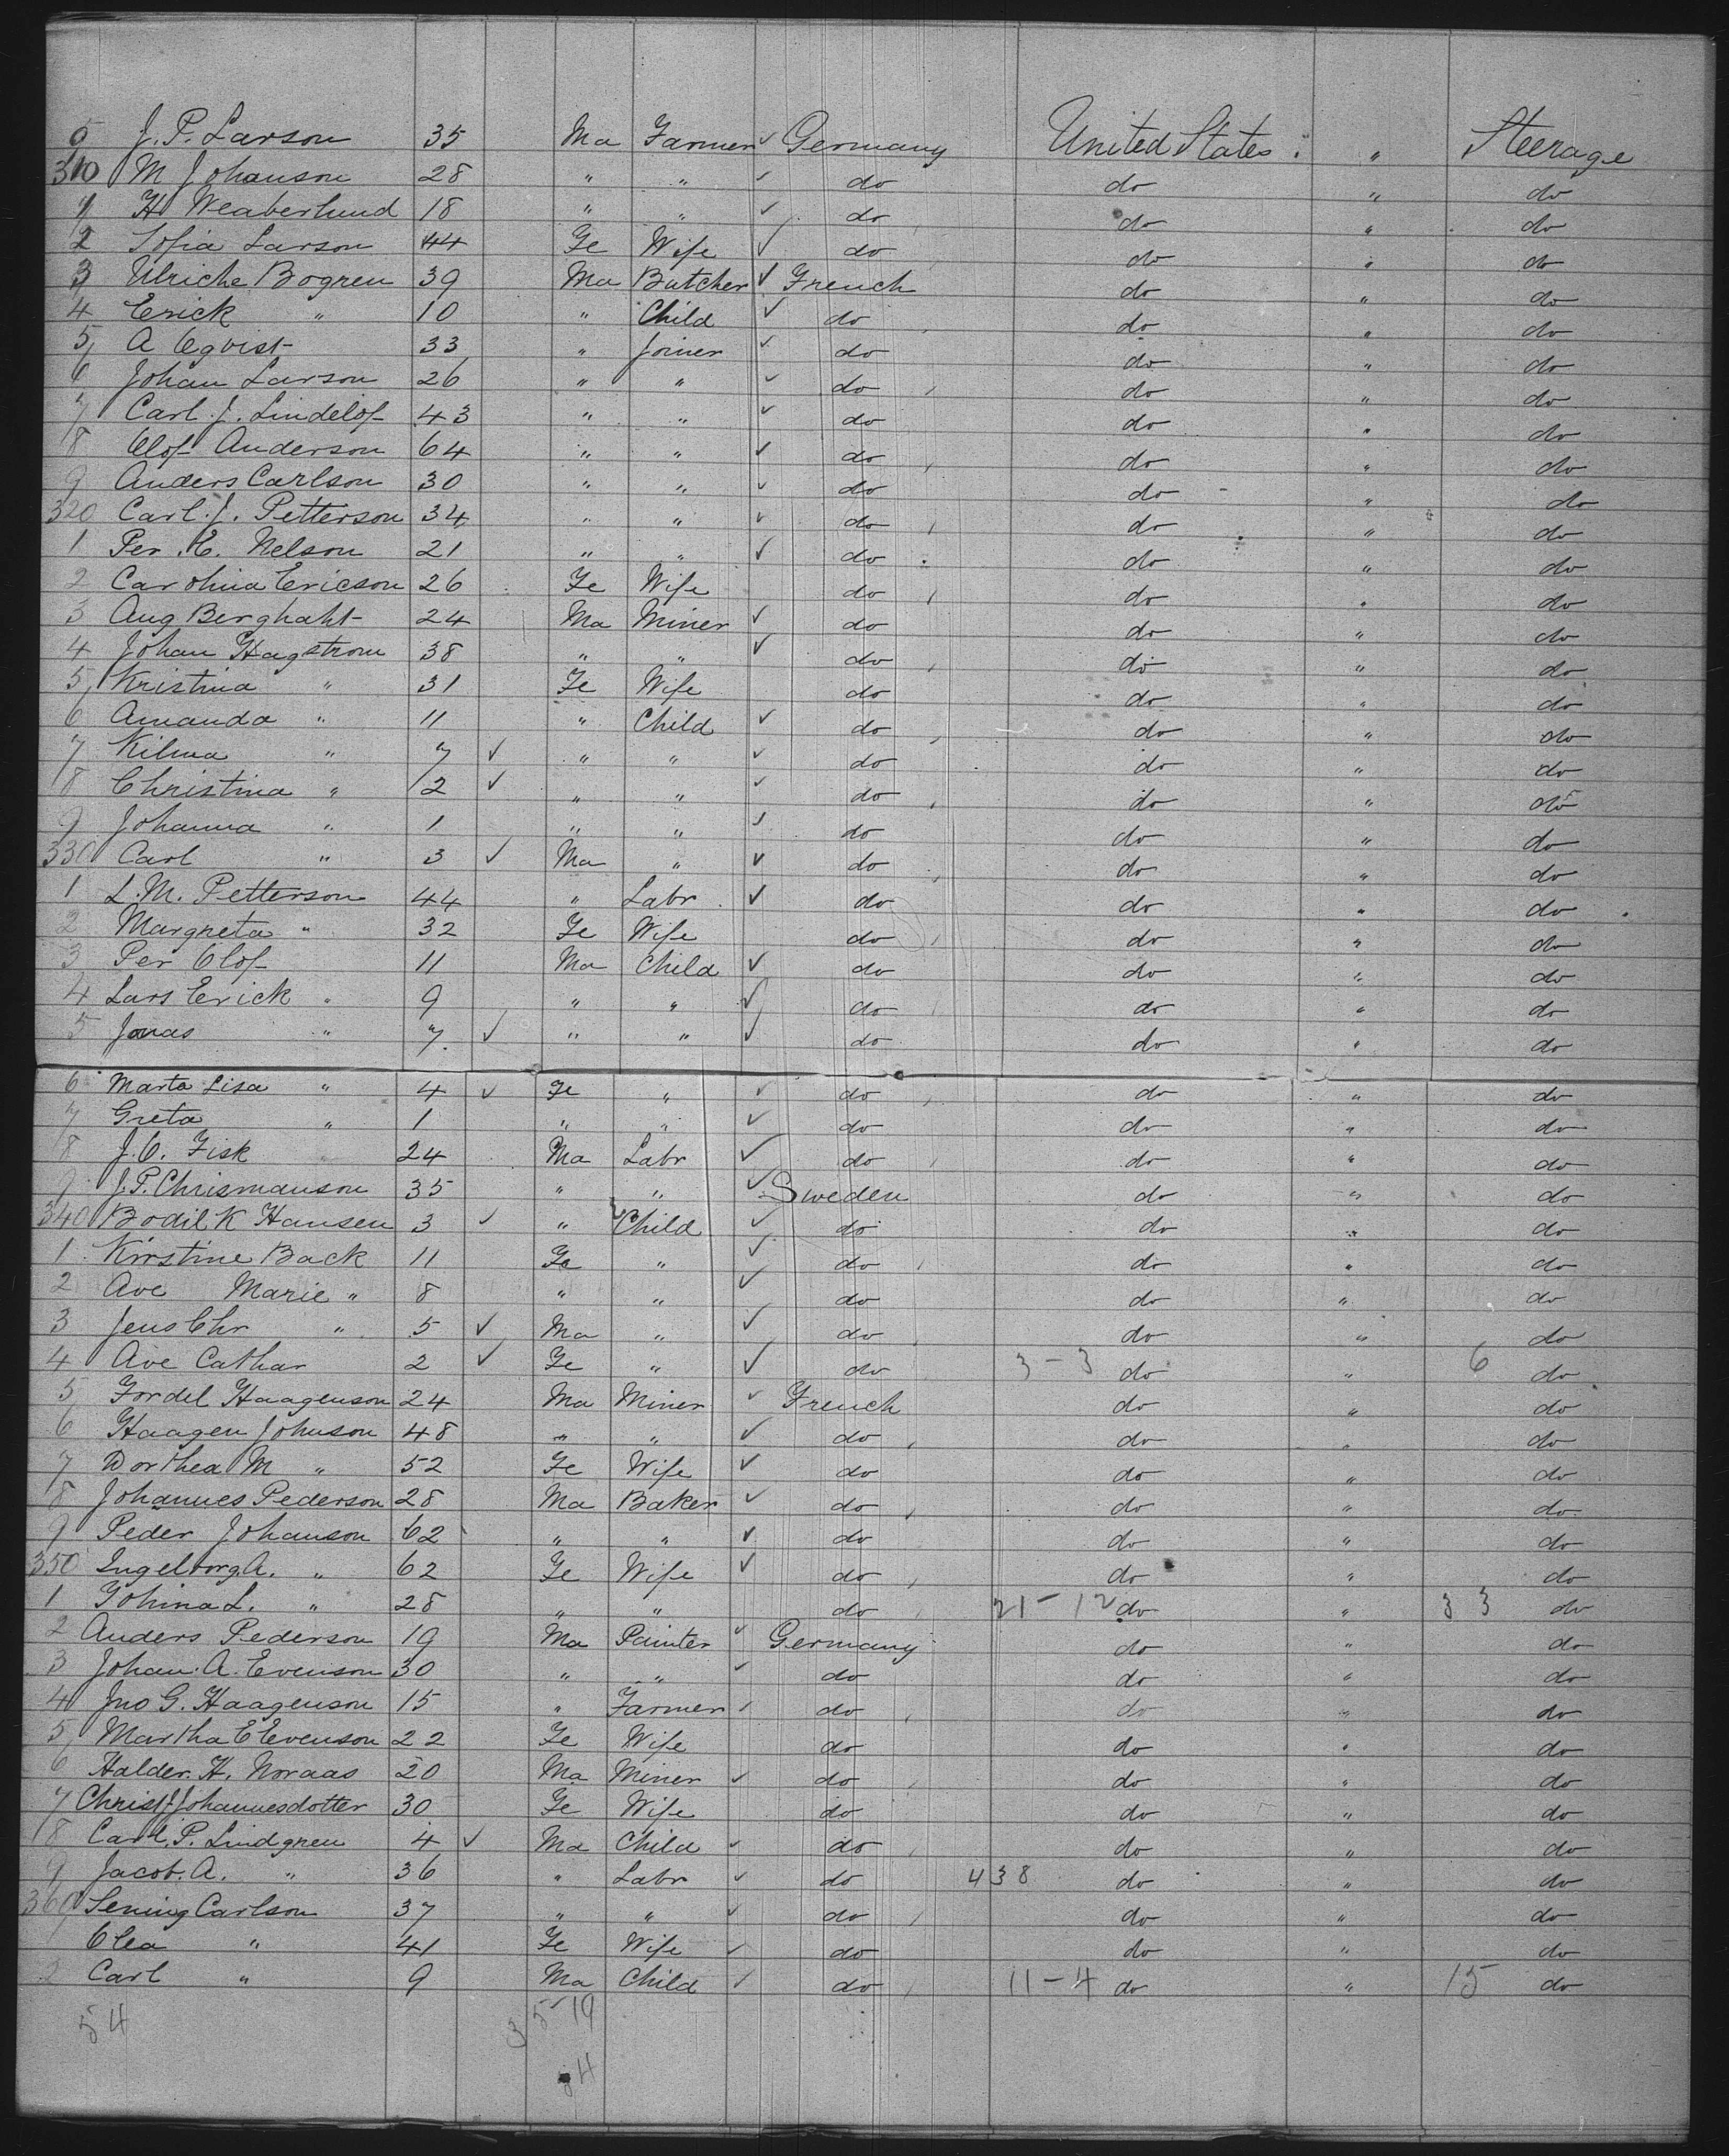 J. P. Larson 35 Ma Farmer ✓ Germany United States. " Steerage
310 M Johanson 28 " " ✓ do do " do
1 H Weaberlund 18 " " ✓ do do " do
2 Sofia Larson 44 Fe Wife ✓ do do " do
3 Ulriche Bogren 39 Ma Butcher ✓ French do " do
4 Erick " 10 " Child ✓ do do " do
5 A Eqvist 33 " Joiner ✓ do do " do
6 Johan Larson 26 " " ✓ do do " do
7 Carl. J. Lindelof 43 " " ✓ do do " do
8 Olof Anderson 64 " " ✓ do do " do
9 Anders Carlson 30 " " ✓ do do " do
320 Carl. J. Petterson 34 " " ✓ do do " do
1 Per. E. Nelson 21 " " ✓ do do " do
2 Carolina Ericson 26 Fe Wife do do " do
3 Aug Berghaht 24 Ma Miner ✓ do do " do
4 Johan Hagstrom 38 " " ✓ do do " do
5 Kristina " 31 Fe Wife do do " do
6 Amanda " 11 " Child ✓ do do " do
7 Kilma " 7 ✓ " " ✓ do do " do
8 Christina " 2 ✓ " " ✓ do do " do
9 Johanna " 1 " " ✓ do do " do
330 Carl " 3 ✓ Ma " ✓ do do " do
1 L. M. Petterson 44 " Labr ✓ do do " do
2 Margreta " 32 Fe Wife do do " do
3 Per Olof 11 Ma Child ✓ do do " do
4 Lars Erick " 9 " " ✓ do do " do
5 Jonas " 7. ✓ " " ✓ do do " do
6 Marta Lisa " 4 ✓ Fe " ✓ do do " do
7 Greta " 1 " " ✓ do do " do
8 J. O. Fisk 24 Ma Labr ✓ do do " do
9 J. P. Chrismanson 35 " " ✓ Sweden do " do
340 Bodil K Hansen 3 ✓ " Child ✓ do do " do
1 Kirstine Back 11 Fe " ✓ do do " do
2 Ave Marie " 8 " " ✓ do do " do
3 Jens Chr " 5 ✓ Ma " ✓ do do " do
4 Ave Cathar 2 ✓ Fe " ✓ do 3-3 do " 6 do
5 Fordel Haagenson 24 Ma Miner ✓ French do " do
6 Haagen Johnson 48 " " ✓ do do " do
7 Dorthea M " 52 Fe Wife ✓ do do " do
8 Johannes Pederson 28 Ma Baker ✓ do do " do
9 Peder Johanson 62 " " ✓ do do " do
350 Ingelborg A. " 62 Fe Wife ✓ do do " do
1 Johina L. " 28 " " do 21-12 do " 33 do
2 Anders Pederson 19 Ma Painter ✓ Germany do " do
3 Johan. A. Evenson 30 " " ✓ do do " do
4 Jno G. Haagenson 15 " Farmer ✓ do do " do
5 Martha E Evenson 22 Fe Wife do do " do
6 Halder. H. Noraas 20 Ma Miner ✓ do do " do
7 Christf. Johannesdotter 30 Fe Wife do do " do
8 Carl. P. Lindgren 4 ✓ Ma Child ✓ do do " do
9 Jacob. A. " 36 " Labr ✓ do 438 do " do
360 Sening Carlson 37 " " ✓ do do " do
Olea " 41 Fe Wife ✓ do do " do
2 Carl " 9 Ma Child ✓ do 11-4 do " 15 do
54 35-19